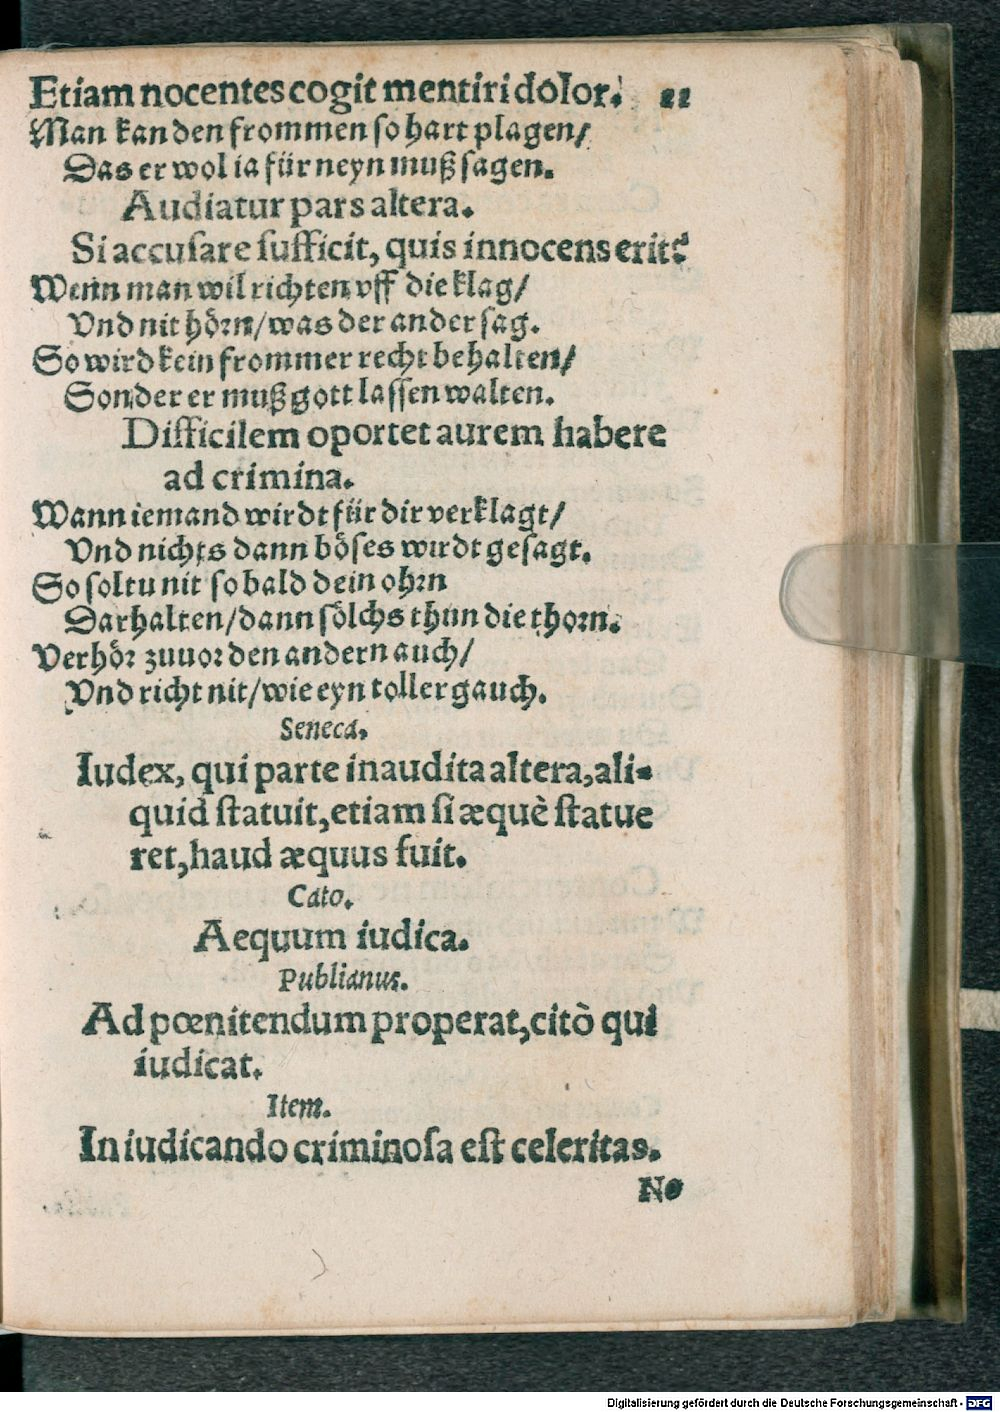 Etiam nocentes cogit mentiri dolor. 11
Man kan den frommen so hart plagen/
Das er wol ia für neyn muß sagen.
Audiatur pars altera.
Si accuſare ſufficit, quis innocens erit?
Wenn man wil richten vff die klag/
Vnd nit hörn/was der ander sag.
So wird kein frommer recht behalten/
Sonder er muß gott lassen walten.
Difficilem oportet aurem habere
ad crimina.
Wann iemand wirdt für dir verklagt/
Vnd nichts dann böses wirdt gesagt.
So soltu nit so bald dein ohrn
Darhalten/dann sölchs thun die thorn.
Verhör zuuor den andern auch/
Vnd richt nit/wie eyn toller gauch.
Seneca.
Iudex, qui parte inaudita altera, ali-
quid ſtatuit, etiam ſi æquè ſtatue
ret, haud æquus fuit.
Cato.
Aequum iudica.
Publianus.
Ad pœnitendum properat, citò qui
iudicat.
Item.
In iudicando criminoſa eſt celeritas.
No
Digitalisierung gefördert durch die Deutsche Forschungsgemeinschaft - DFG